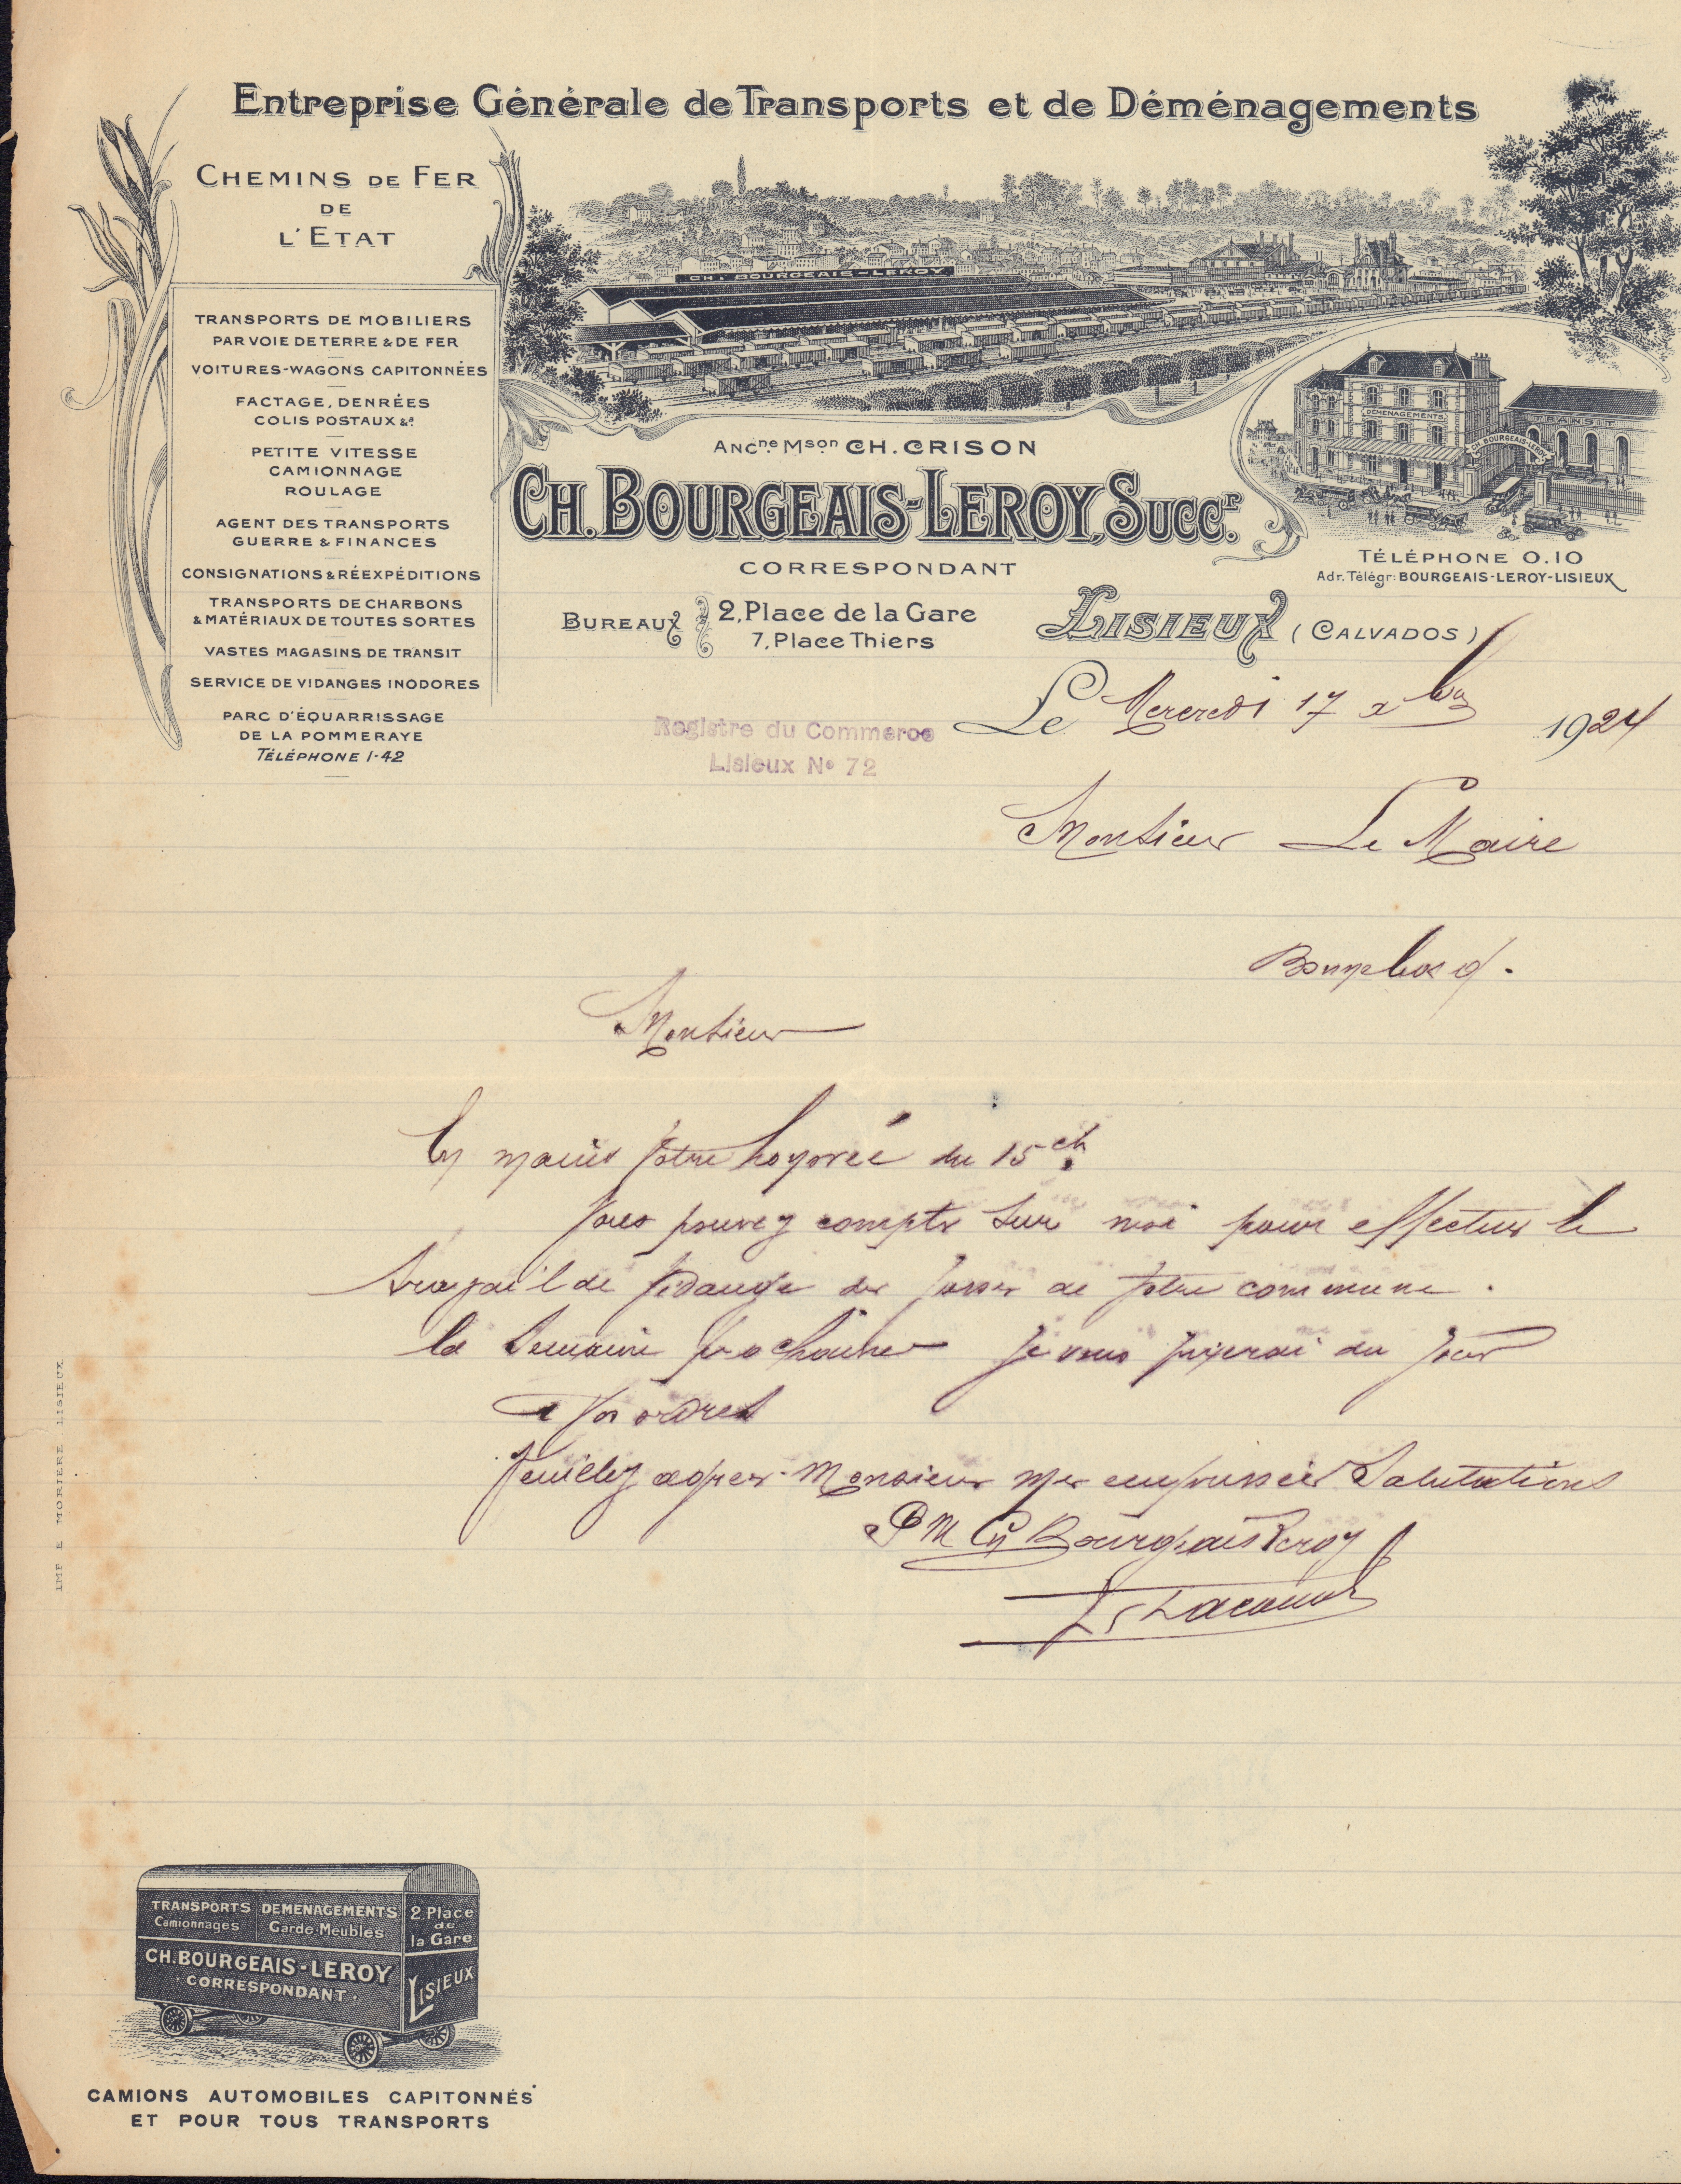 Entreprise Générale de Transports et de Déménagements
CHEMINS DE FER
DE
L'ETAT
TRANSPORTS DE MOBILIERS
PAR VOIE DE TERRE & DE FER
VOITURES-WAGONS CAPITONNÉES
FACTAGE, DENRÉES
COLIS POSTAUX &a
PETITE VITESSE
CAMIONNAGE
ROULAGE
AGENT DES TRANSPORTS
GUERRE & FINANCES
CONSIGNATIONS & RÉEXPÉDITIONS
TRANSPORTS DE CHARBONS
& MATÉRIAUX DE TOUTES SORTES
VASTES MAGASINS DE TRANSIT
SERVICE DE VIDANGES INODORES
PARC D'ÉQUARRISSAGE
DE LA POMMERAYE
TÉLÉPHONE 1-42
CH. BOURGEAIS-LEROY
DÉMÉNAGEMENTS
TRANSIT
CH. BOURGEAIS-LEROY
Ancne Mson CH. CRISON
CH. BOURGEAIS-LEROY, Succr.
CORRESPONDANT
BUREAUX 2, Place de la Gare
7, Place Thiers
TÉLÉPHONE 0.10
Adr. Télégr: BOURGEAIS-LEROY-LISIEUX
LISIEUX (CALVADOS)
Registre du Commerce
Lisieux No 72
Le Mercredi 17 xbre 1924
Monsieur Le Maire
Bonnebosq.
Monsieur
En mains votre honorée du 15 ct.
Vous pouvez compter sur moi pour effectuer le
travail de vidange des fosses de votre commune.
la semaine prochaine je vous fixerai du jour
A vos ordres
Veuillez agréer Monsieur mes empressées Salutations
P M Ch Bourgeais Leroy
IMP E MORIERE LISIEUX
TRANSPORTS
Camionnages
DEMENAGEMENTS
Garde-Meubles
2, Place
de
la Gare
CH. BOURGEAIS-LEROY
CORRESPONDANT
LISIEUX
CAMIONS AUTOMOBILES CAPITONNÉS
ET POUR TOUS TRANSPORTS